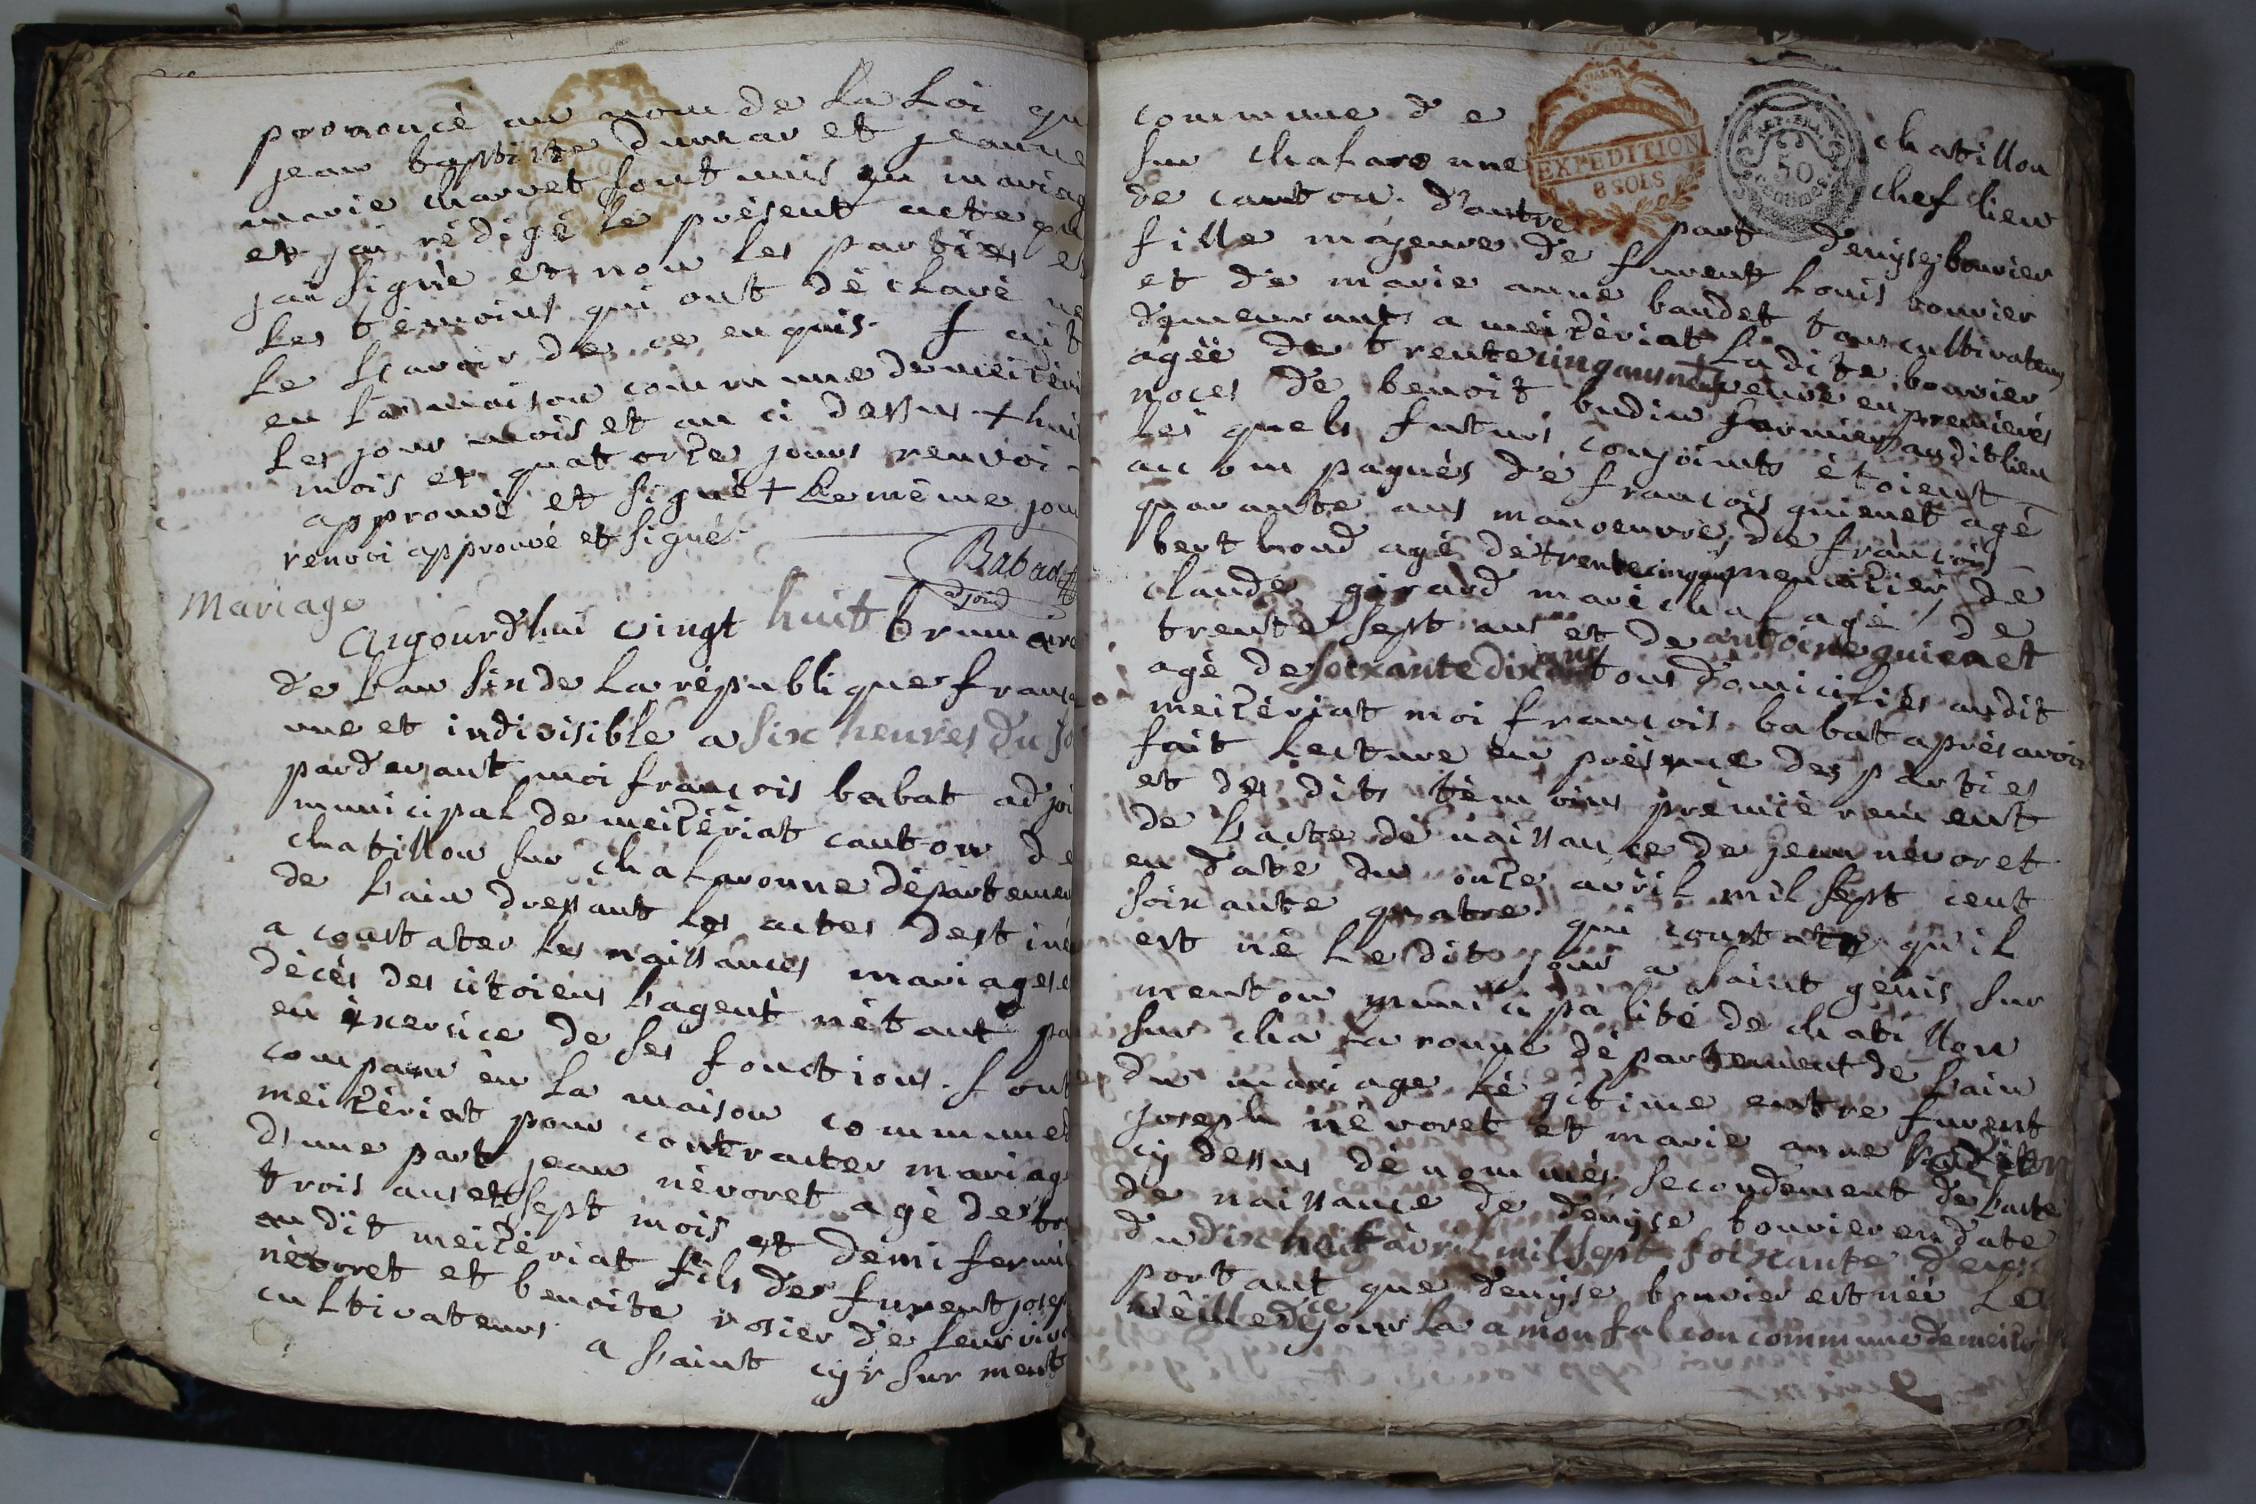 prononcé au nom de La Loi qu
jean baptiste dumar et jeanne
marie charvet sont unis en mariag
et jai rédigé le présent acte que
jai signé et non les parties et
Les témoins qui ont déclaré ne
Le scavoir de ce enquis. fait
en La maison commune de meizéri
Les jour mois et an ci dessus + huit
mois et quatorze jours renvoi
approuvé et signé + Le même jour
renvoi approuvé et signé.
Babad
adjoint
Mariage
Aujourd'hui vingt huit brumaire
de L'an six de La république franca
une et indivisible a six heures du so
pardevant moi françois babat adjoi
municipal de meizériat canton de
chatillon sur chalaronne département
de L'ain dressant Les actes destiné
a constater les naissances mariages e
décès des citoiens L'agent n'étant pa
en éxersice de ses fonctions. sont
comparu en La maison commune d
meizériat pour contracter mariage
d'une part jean névoret agé de tre
trois ans et sept mois et demi fermi
au dit meizériat fils de furent josep
névoret et benoite rosier de leur viva
cultivateurs a saint cyr sur ment
commune de chatillon
sur chalaronne chef lieu
EXPEDITION
8 SOLS
REP. FRANC
50
centimes
de canton. d'autre part denyse bouvier
fille majeure de furent Louis bouvier
et de marie anne baudet tous cultivateurs
demeurants a meizériat Ladite bouvier
agée de trente cinq ans veuve en premieres
noces de benoit budin fermier audit lieu
Les quels futurs conjoints étoient
accompagnés de françois guienet agé
quarante ans manoeuvre, de françois
berthoud agé de trente cinq ans menuizier, de
claude girard maréchal agé de
trente sept ans et de antoine guienet
agé de soixante dix ans tous domiciliés audit
meizériat moi françois babat après avoir
fait Lecture en présence des parties
et des dits témoins premièrement
de L'acte de naissance de jean névoret
en date du onze avril mil sept cent
soixante quatre. qui constate qu'il
est né Le dit jour a saint génis sur
menton municipalité de chatillon
sur chalaronne département de L'ain
du mariage Légitime entre furent
joseph névoret et marie anne
cy dessus dénommés. secondement de L'acte
de naissance de denyse bouvier en date
du dix huit avril mil sept soixante deux
portant que denyse bouvier est née Le
veille de ce jour La a monfalcon commune de meizé